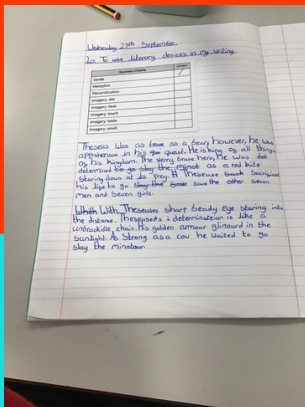 Wednesday 29th September
Lo: To use literary devices in my writing.
Success criteria
Simile
Metaphor
Personification
Imagery: see
Imagery: hear
Imagery: touch
Imagery: taste
Imagery: smell
Theseus was as brave as a bear, however, he was
apprehensive in his quest. He is king of all things
of his kingdom. The very brave hero, He was
determined to go slay the minot as a red kite
staring down at its prey. Theseuse sacrificed
his life to go slay the save the other seven
men and seven girls.
With Theseuses sharp beady eye staring into
the distance. Thespirits + determination is like a
unbractible chain. His golden armour glinourd in the
sunlight. As strong as a cow he waited to go
slay the minotaur.